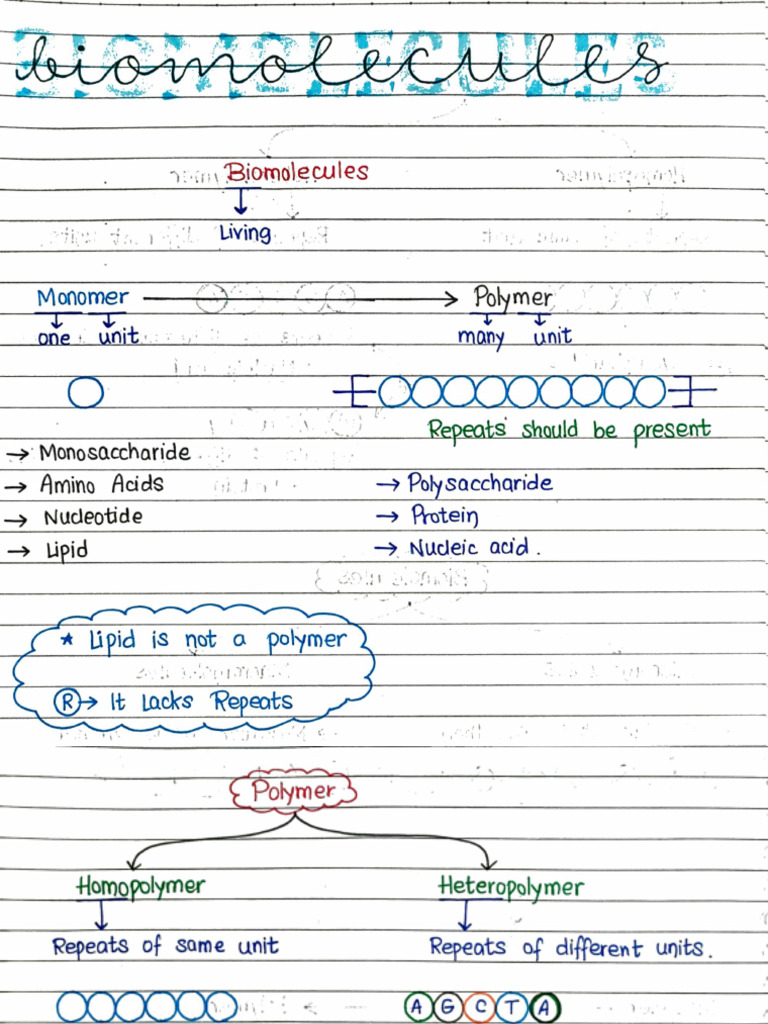 biomolecules
Biomolecules
Living
Monomer → Polymer
one unit many unit
Repeats should be present
→ Monosaccharide
→ Amino Acids → Polysaccharide
→ Nucleotide → Protein
→ Lipid → Nucleic acid.
* Lipid is not a polymer
Ⓡ→ It Lacks Repeats
Polymer
Homopolymer Heteropolymer
Repeats of same unit Repeats of different units.
A G C T A